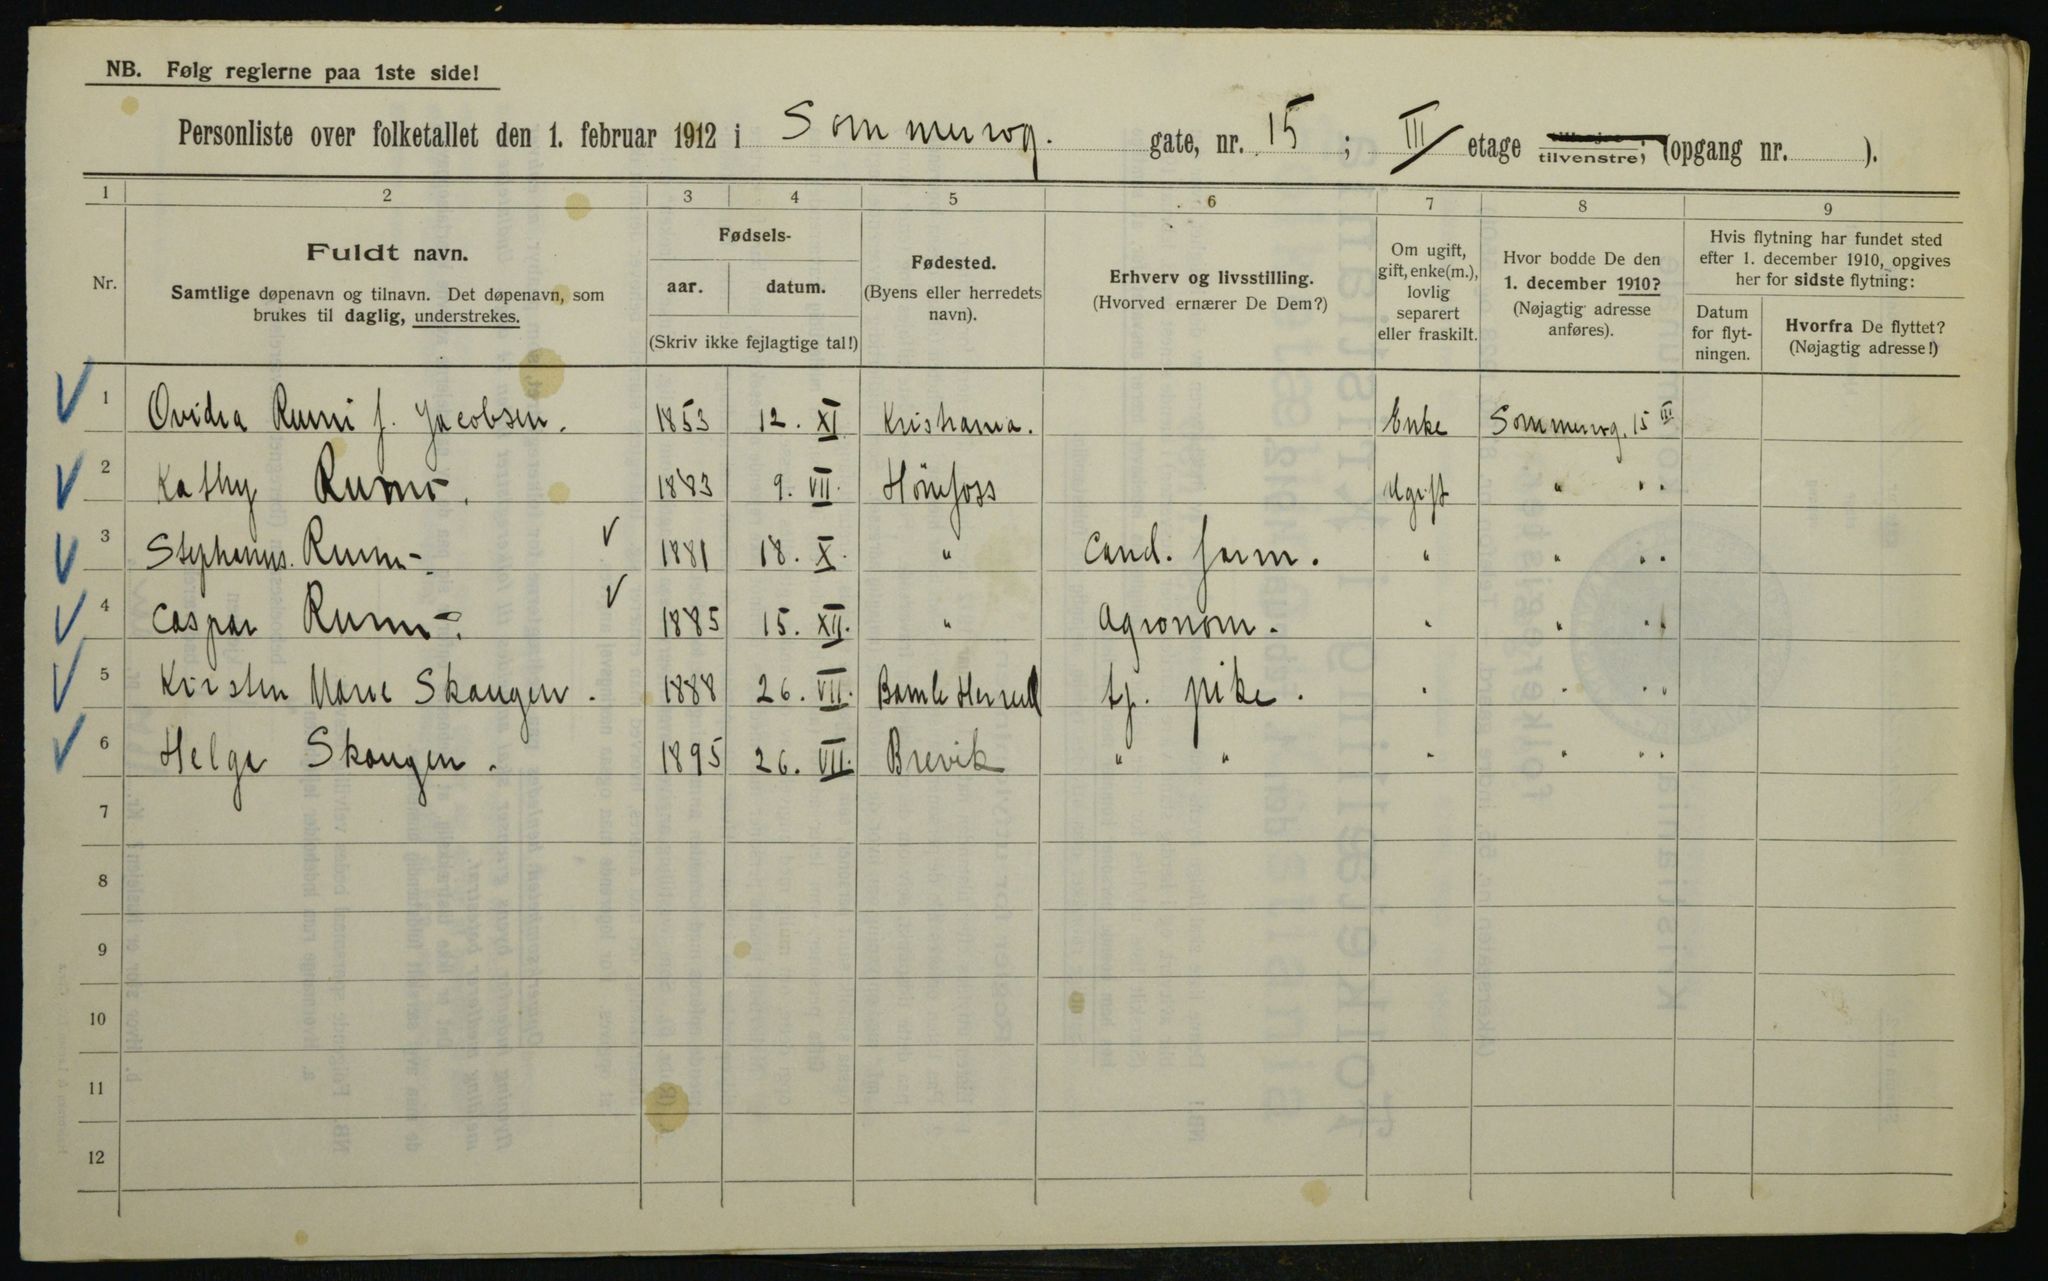 NB. Følg reglerne paa 1ste side!
Personliste over folketallet den 1. februar 1912 i Sommerrog. gate, nr. 15 ; III/ etage tilvenstre; (opgang nr. ).
1 2 3 4 5 6 7 8 9
Nr.
Fuldt navn.
Samtlige døpenavn og tilnavn. Det døpenavn, som
brukes til daglig, understrekes.
Fødsels-
aar. datum.
(Skriv ikke fejlagtige tal!)
Fødested.
(Byens eller herredets
navn).
Erhverv og livsstilling.
(Hvorved ernærer De Dem?)
Om ugift,
gift, enke(m.),
lovlig
separert
eller fraskilt.
Hvor bodde De den
1. december 1910?
(Nøjagtig adresse
anføres).
Hvis flytning har fundet sted
efter 1. december 1910, opgives
her for sidste flytning:
Datum
for flyt-
ningen.
Hvorfra De flyttet?
(Nøjagtig adresse!)
1 Ovidia f. Jacobsen. 1853 12. XI Kristiania. Enke Sommerrog. 15 III
2 Kathy 1883 9. VII. Hønefoss Ugift " "
3 Stephanus. 1881 18. X. " Cand. farm. " " "
4 Caspar 1885 15. XII. " Agronom. " " "
5 Kirsten Marie Skaugen. 1888 26. VII. Bamle Herred tj. pike. " " "
6 Helga Skaugen. 1895 26. VII. Brevik " " " " "
7
8
9
10
11
12